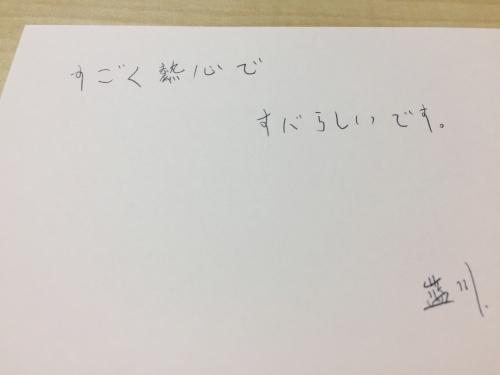 すごく熱心で
すばらしいです。
藍川